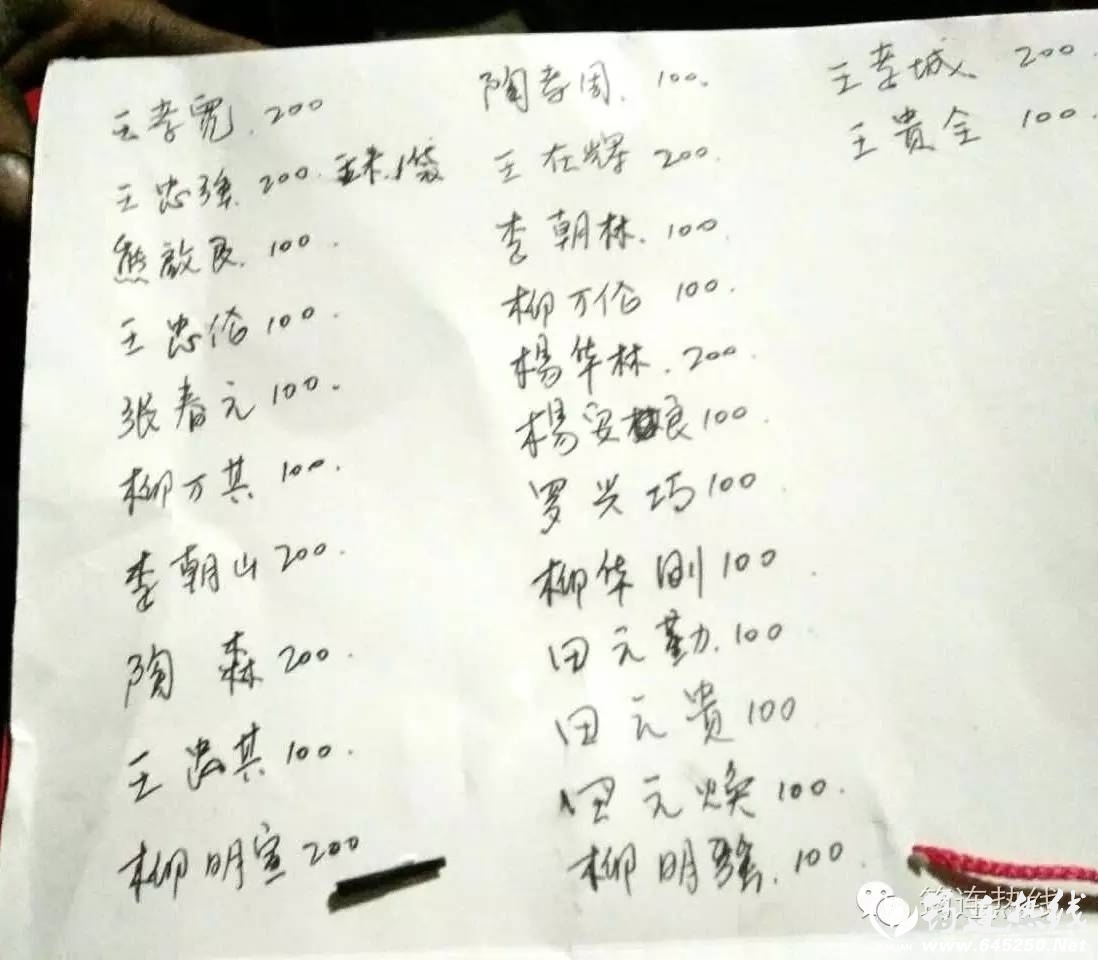 王孝宽.200
王忠强.200.玉米1袋
熊敌良.100.
王忠伦100.
张春元100.
柳万其100.
李朝山200.
陶森200.
王忠其100.
柳明宣200
陶孝周.100.
王在辉200.
李朝林.100.
柳万伦100.
杨华林.200.
杨安良100.
罗兴巧100.
柳华刚100
田元勤.100
田元贵100
田元焕100.
柳明强.100.
王孝城.200.
王贵全100.
筠连热线
筠连热线
www.645250.Net